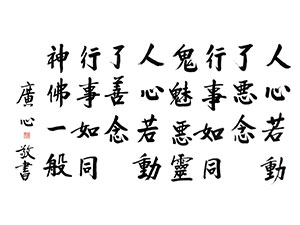 人心若動
了惡念
行事如同
鬼魅惡靈
人心若動
了善念
行事如同
神佛一般
廣心敬書